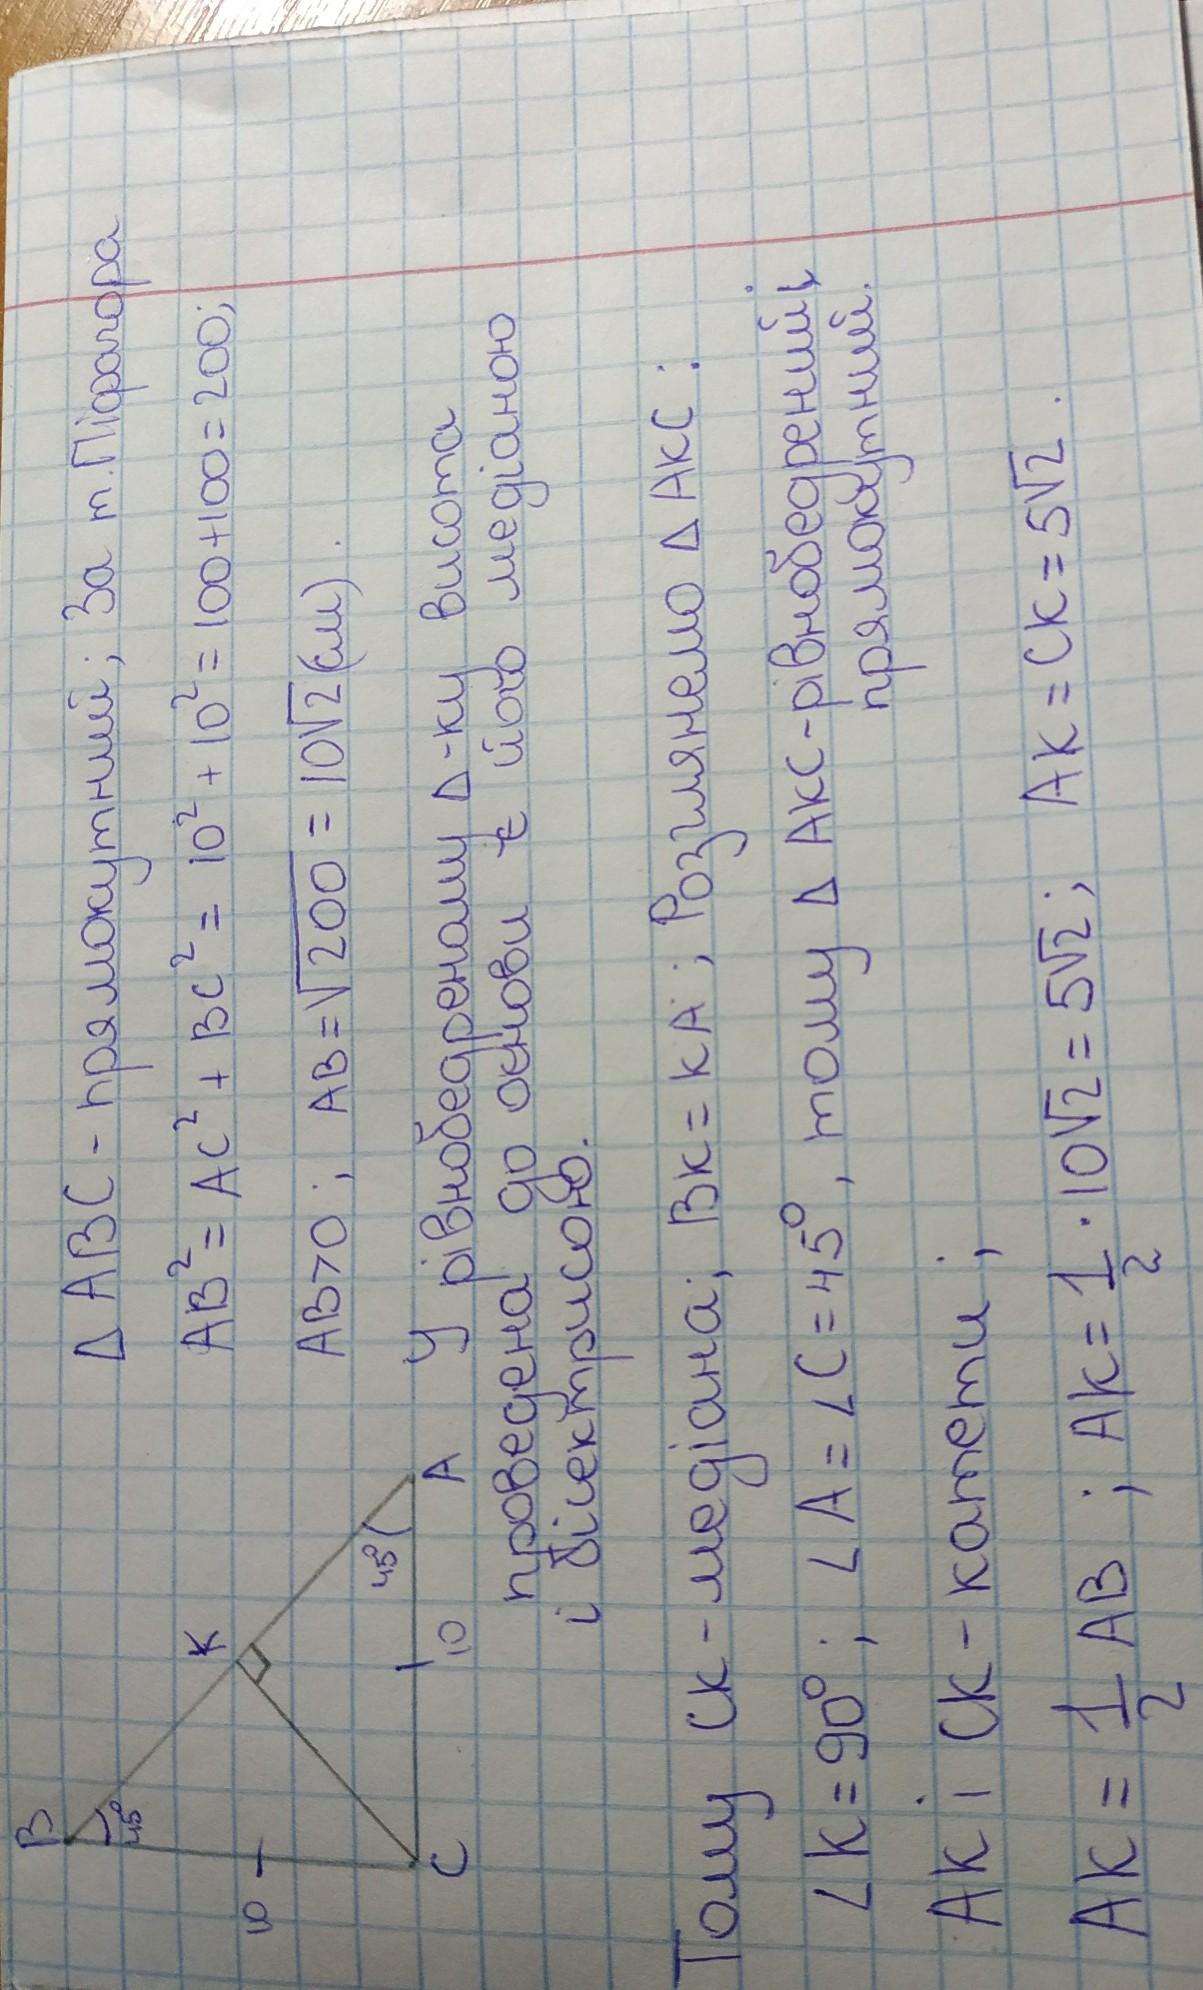 B
45°
10
K
45°
C
10
A
Δ ABC - прямокутний; За т. Піфагора
AB² = AC² + BC² = 10² + 10² = 100 + 100 = 200;
AB > 0; AB = √200 = 10√2 (см).
У рівнобедреному Δ-ку висота
проведена до основи є його медіаною
і бісектрисою.
Тому CK - медіана; BK = KA; Розглянемо Δ AKC:
∠K = 90°; ∠A = ∠C = 45°, тому Δ AKC - рівнобедрений і
прямокутний.
AK і CK - катети;
AK = 1/2 AB; AK = 1/2 · 10√2 = 5√2; AK = CK = 5√2.